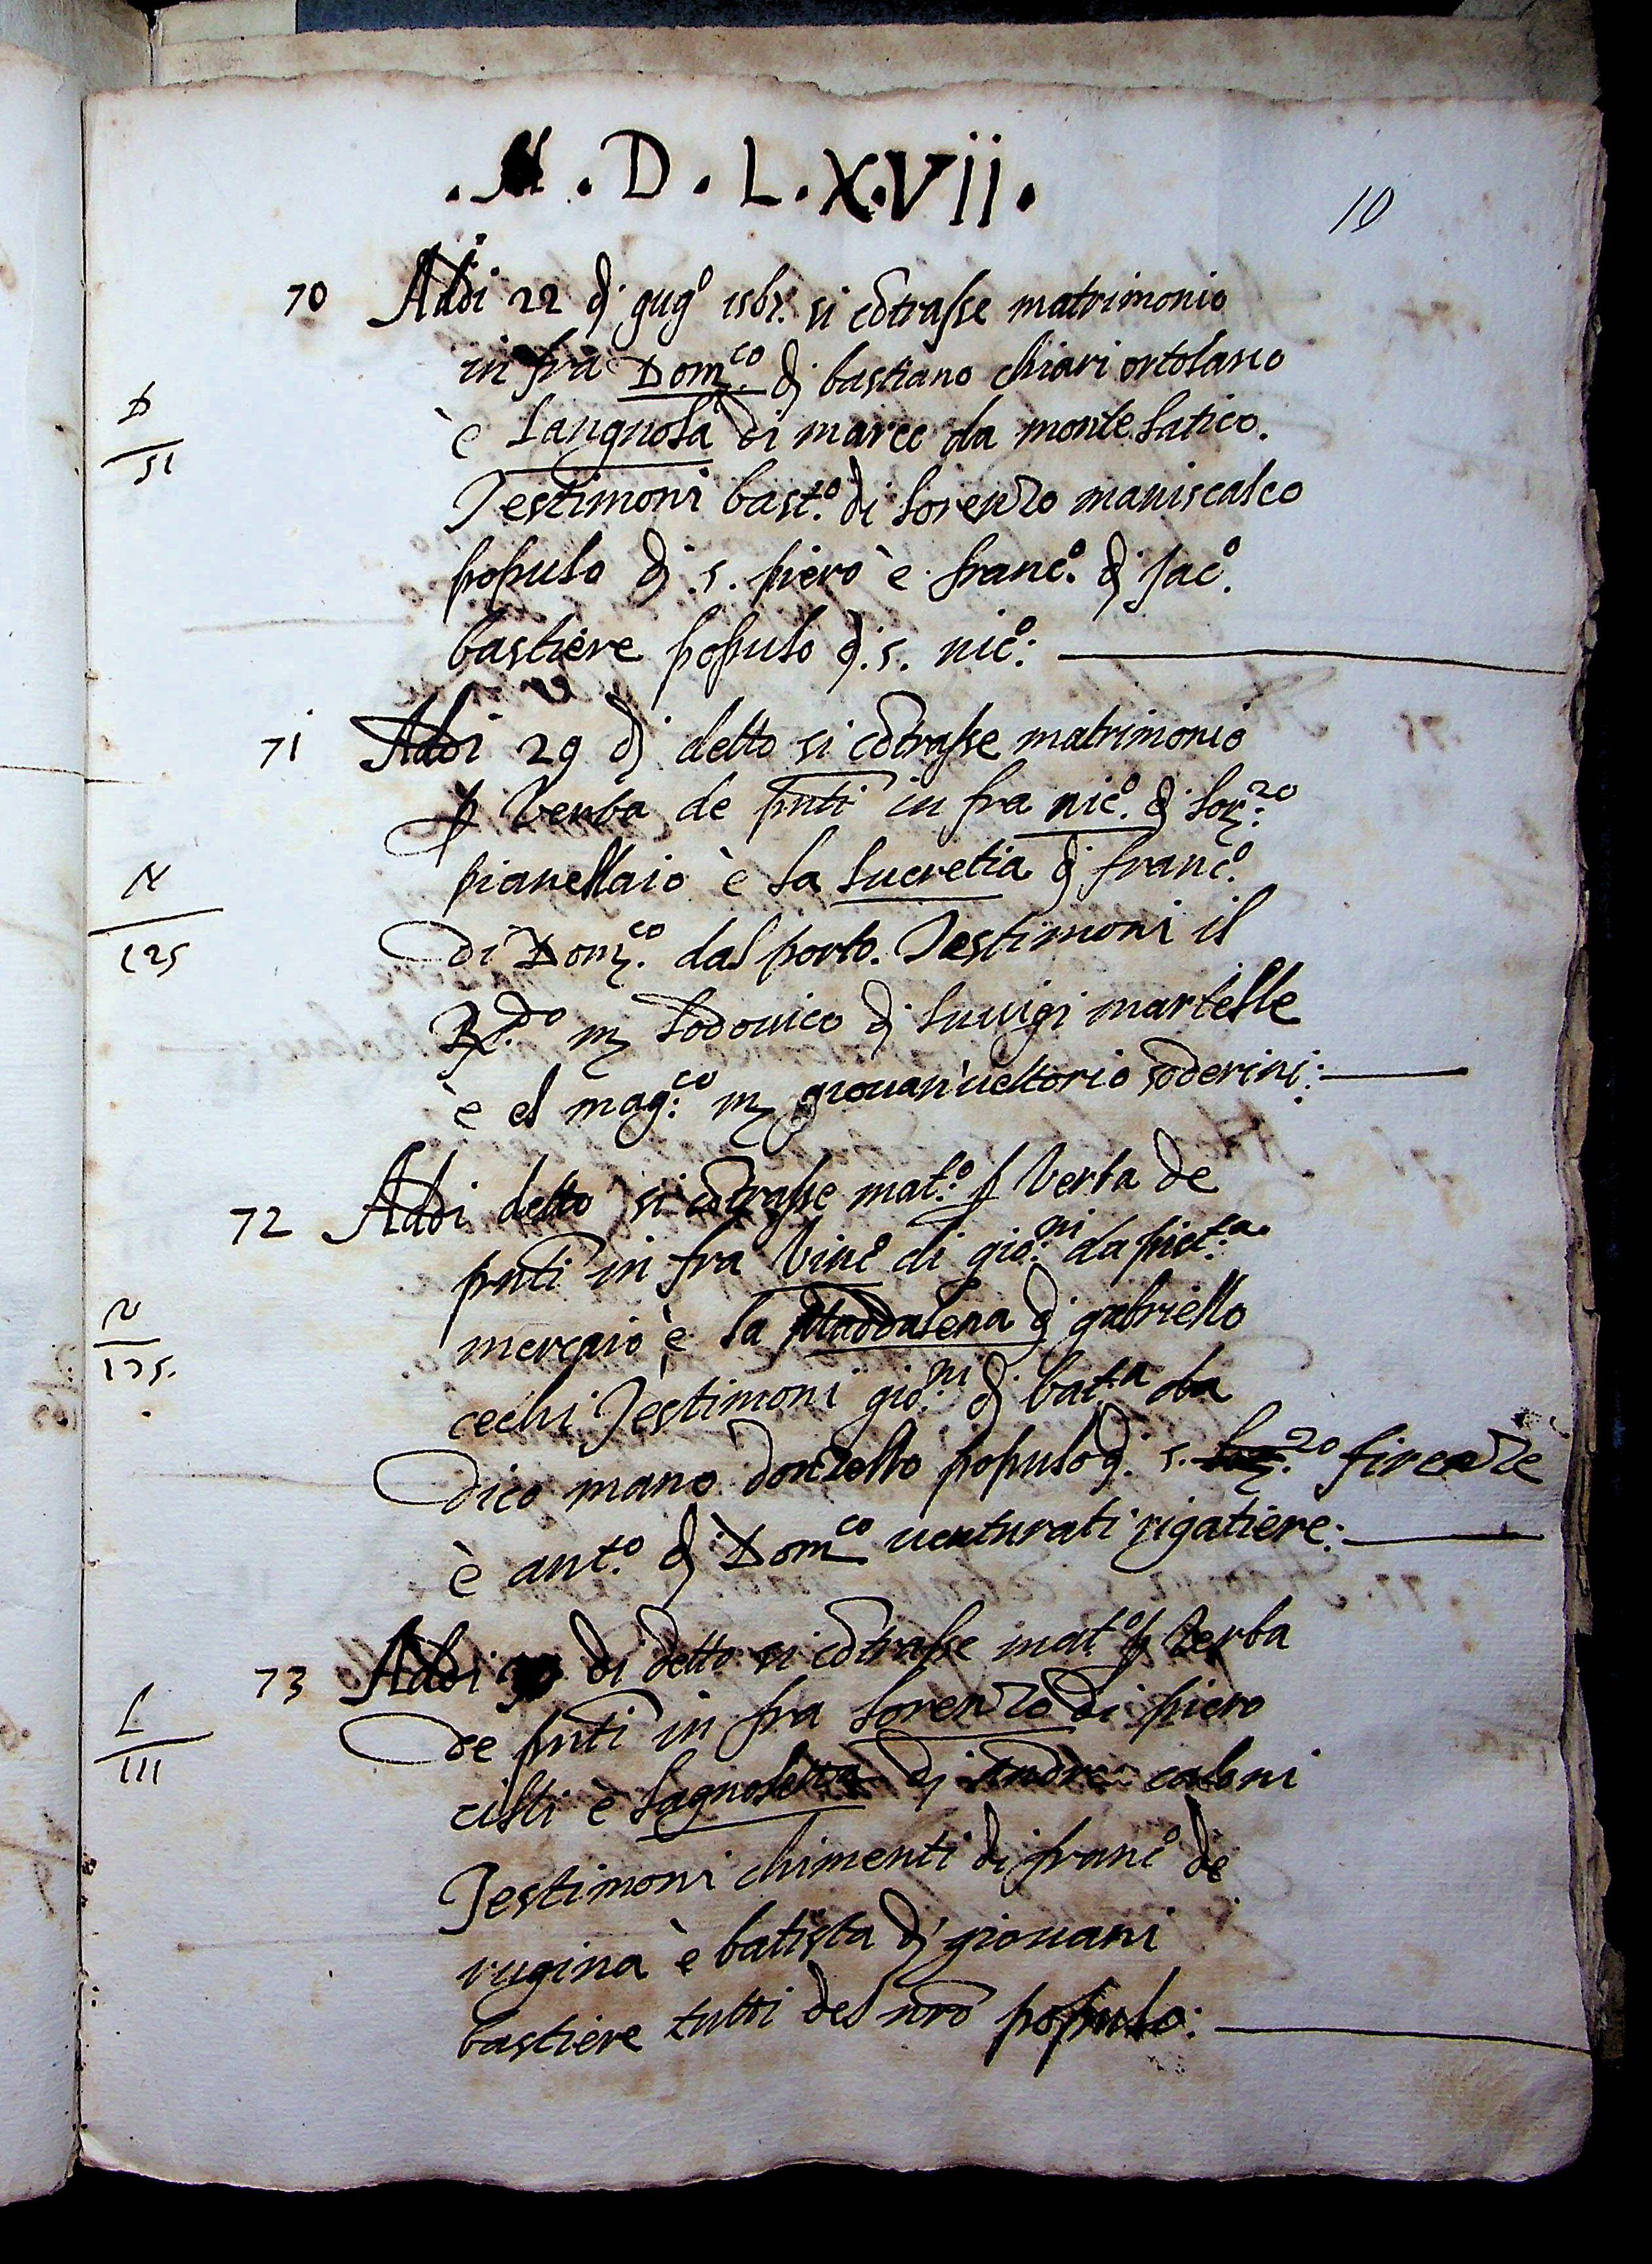 .M.D.L.X.Vii.
10
70 Addi 22 di gug.o 1567. si cõtrasse matrimonio
in fra Dom.co di bastiano chiari ortolano
D
51
è Langnola di marco da monte latico.
Testimoni bast.o di lorenzo maniscalco
populo di .s. piero è franc.o di Jac.o
bastiere populo di .s. nic.o:
71 Addi 29 di detto si cõtrasse matrimonio
p verba de pñti in fra nic.o di lor.zo
N
125
pianellaio è la lucretia di franc.o
di Dom.co dal porto. Testimoni il
R.do m lodovico di luuigi martelle
è el mag.co m giouan uettorio soderini:
72 Addi detto si cõtrasse mat.o p verba de
pñti in fra Vinc.o di gio.ni da piet.a
V
175.
merçaio è la Maddalena di gabriello
cechi Testimoni gio.ni di bat.a da
dico mano donzello populo di .s. lor.zo firenze
è ant.o di Dom.co uenturati rigatiere:
73 Addi 30 di detto si cõtrasse mat.o p verba
L
111
de pñti in fra lorenzo di piero
cilli è lagnoletta di Andrea caloni
Testimoni chimenti di franc.o de
rugina è batista di giouani
bastiere tutti del nrõ populo: